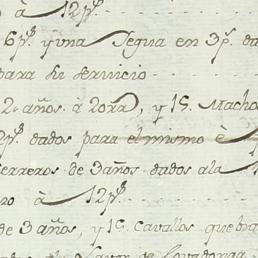 à 12p.s
6p.s y una Yegua en 3p.s da
para su servicio
2. años à 20r.s, y 15. Macho
p.s dados para el mismo è
erreros de 3 años dados ala
ro à 12p.s
de 3 años, y 15. Cavallos quebra